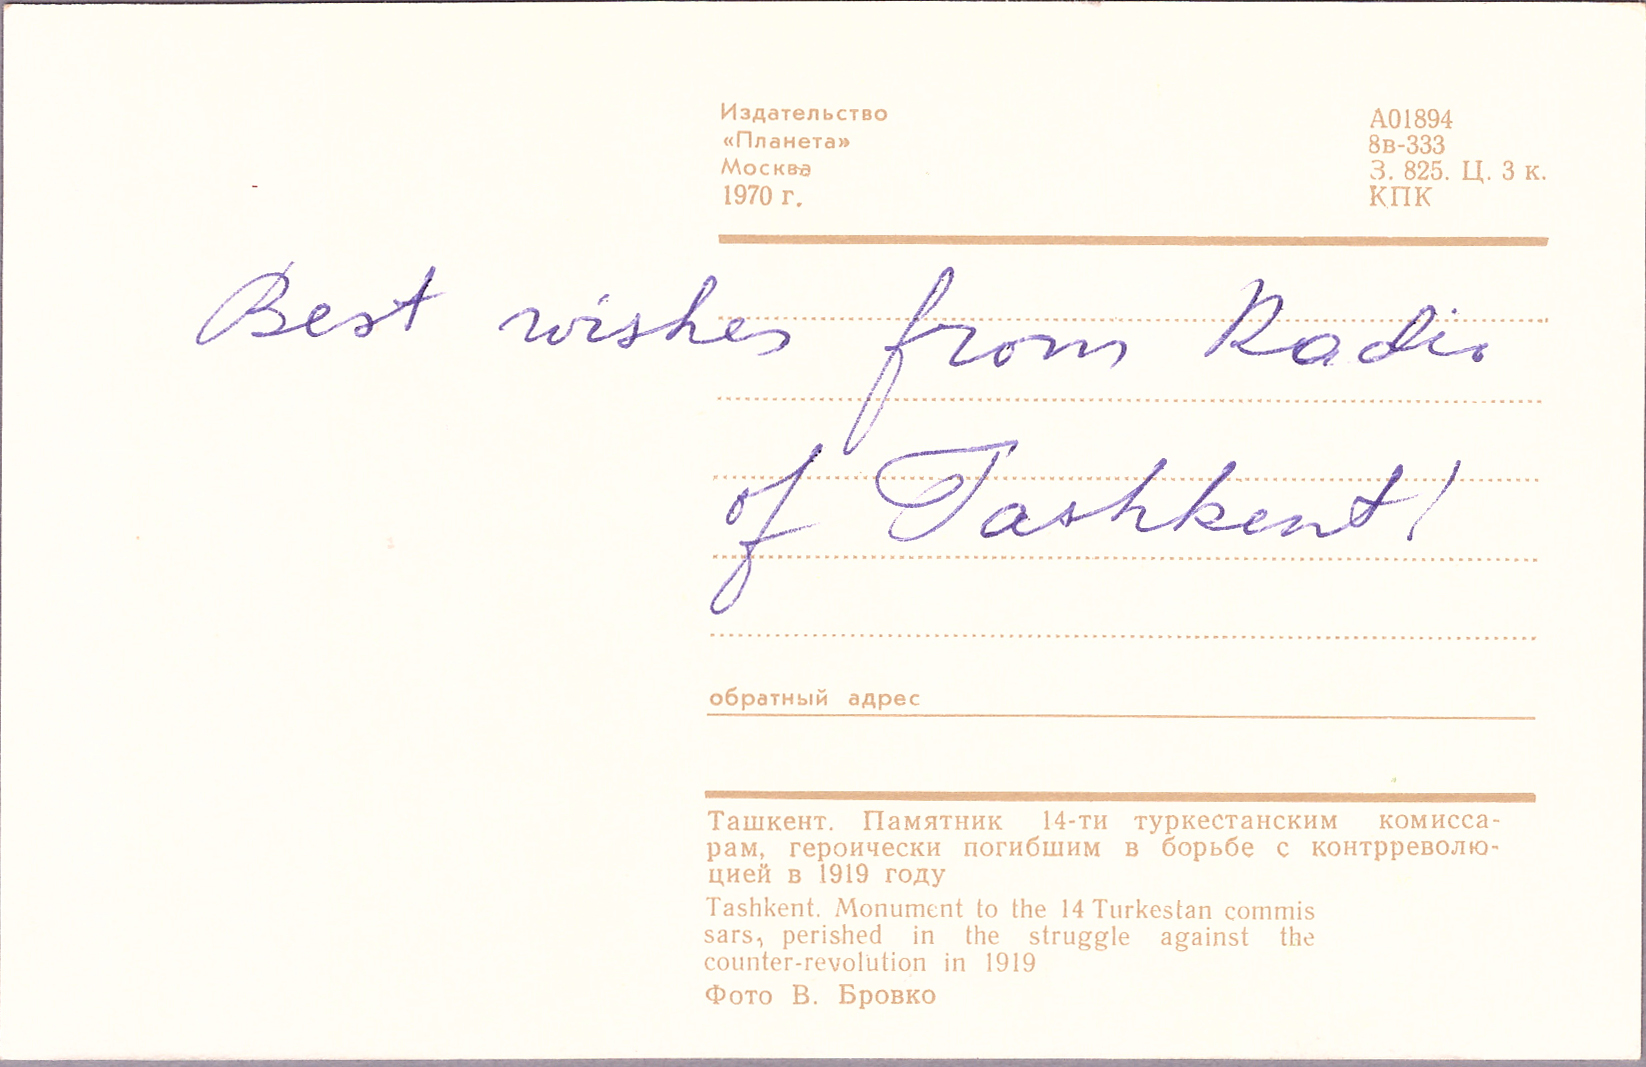 Издательство
«Планета»
Москва
1970 г.
А01894
8в-333
З. 825. Ц. 3 к.
КПК
Best wishes from Radio
of Tashkent!
обратный адрес
Ташкент. Памятник 14-ти туркестанским комисса-
рам, героически погибшим в борьбе с контрреволю-
цией в 1919 году
Tashkent. Monument to the 14 Turkestan commis
sars, perished in the struggle against the
counter-revolution in 1919
Фото В. Бровко